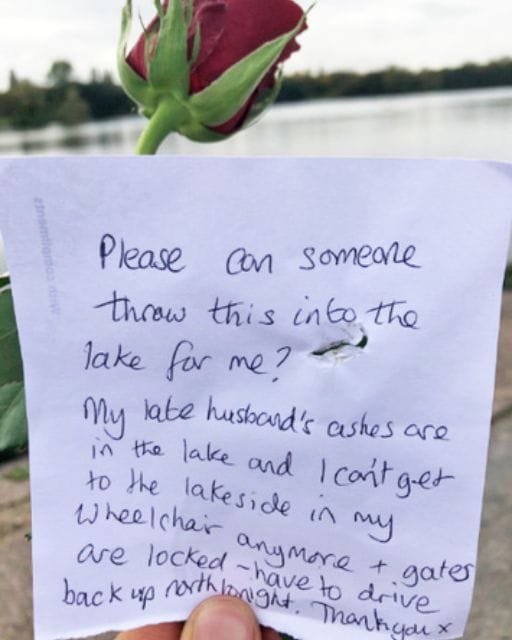 Please can someone
throw this into the
lake for me?
My late husband's ashes are
in the lake and I can't get
to the lakeside in my
wheelchair anymore + gates
are locked - have to drive
back up north tonight. Thank you x